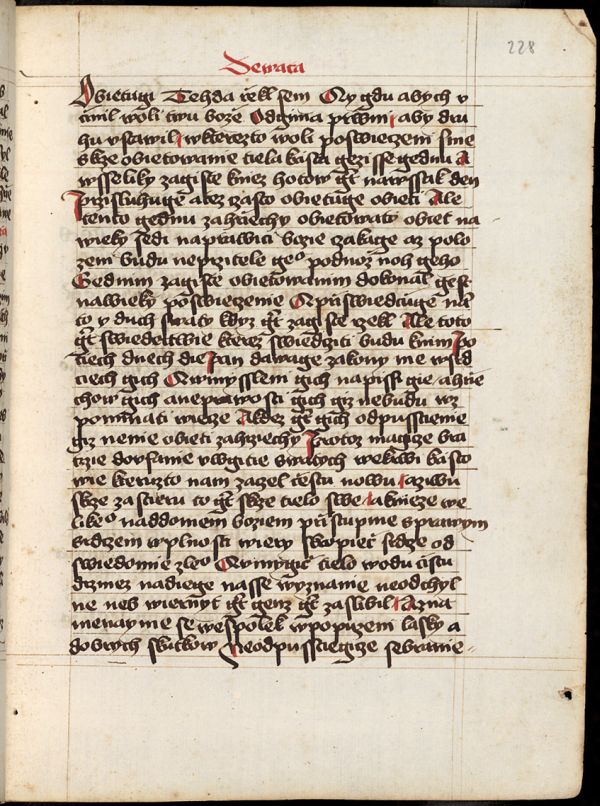 228
Dewata
Obietugi Tehda rzekl sem Ay gdu abych v
czinil woli twu boze Odgima prwnii aby dru
hu vstawil w kterezto woli poswieczeni sme
skrze obietowanie tiela krista gezisse gednu A
wsseliky zagiste knez hotow gest na wssaki den
przisluhuge a tez czasto obietuge obieti Ale
tento gednu za hrziechy obietowaw obiet na
wieky sedi na prawici bozie czakage az polo
zeni budu neprzitele geho podnoz noh geho
Gednim zagiste obietowanim dokonal gest
na wieky poswieczenie A przisweedczuge nam
to y duch swaty kdyz gest zagiste rzekl Ale toto
gest swiedectwie kterez swiedcziti budu k nim po
tiech dnech die pan dawage zakony me w srd
ciech gich A w myssleni gich napissi gie a hrzie
chow gich a neprawosti gich giz nebudu wz
pominati wiecze A kdez gest gich odpusstienie
giz nenie obieti za hrziechy Protoz magicze bra
trzie dovfanie v wgitie swatych w krwi kristo
wie kteruzto nam zaczel cestu nowu a ziwu
skrze zastieru to gest skrze tielo swe a knieze we
likeho nad domem boziem przistupme s prawym
srdczem w plnosti wiery skropiec srdce od
swiedomie zleho A vmygic tielo wodu czistu
drzmez nadiege nasse wyznanie neodchyl
ne neb wierny gest genz gest zaslibil A zna
menayme se wespolek w popuzeni lasky a
dobrych skutkow Neodpusstiegicze sebranie